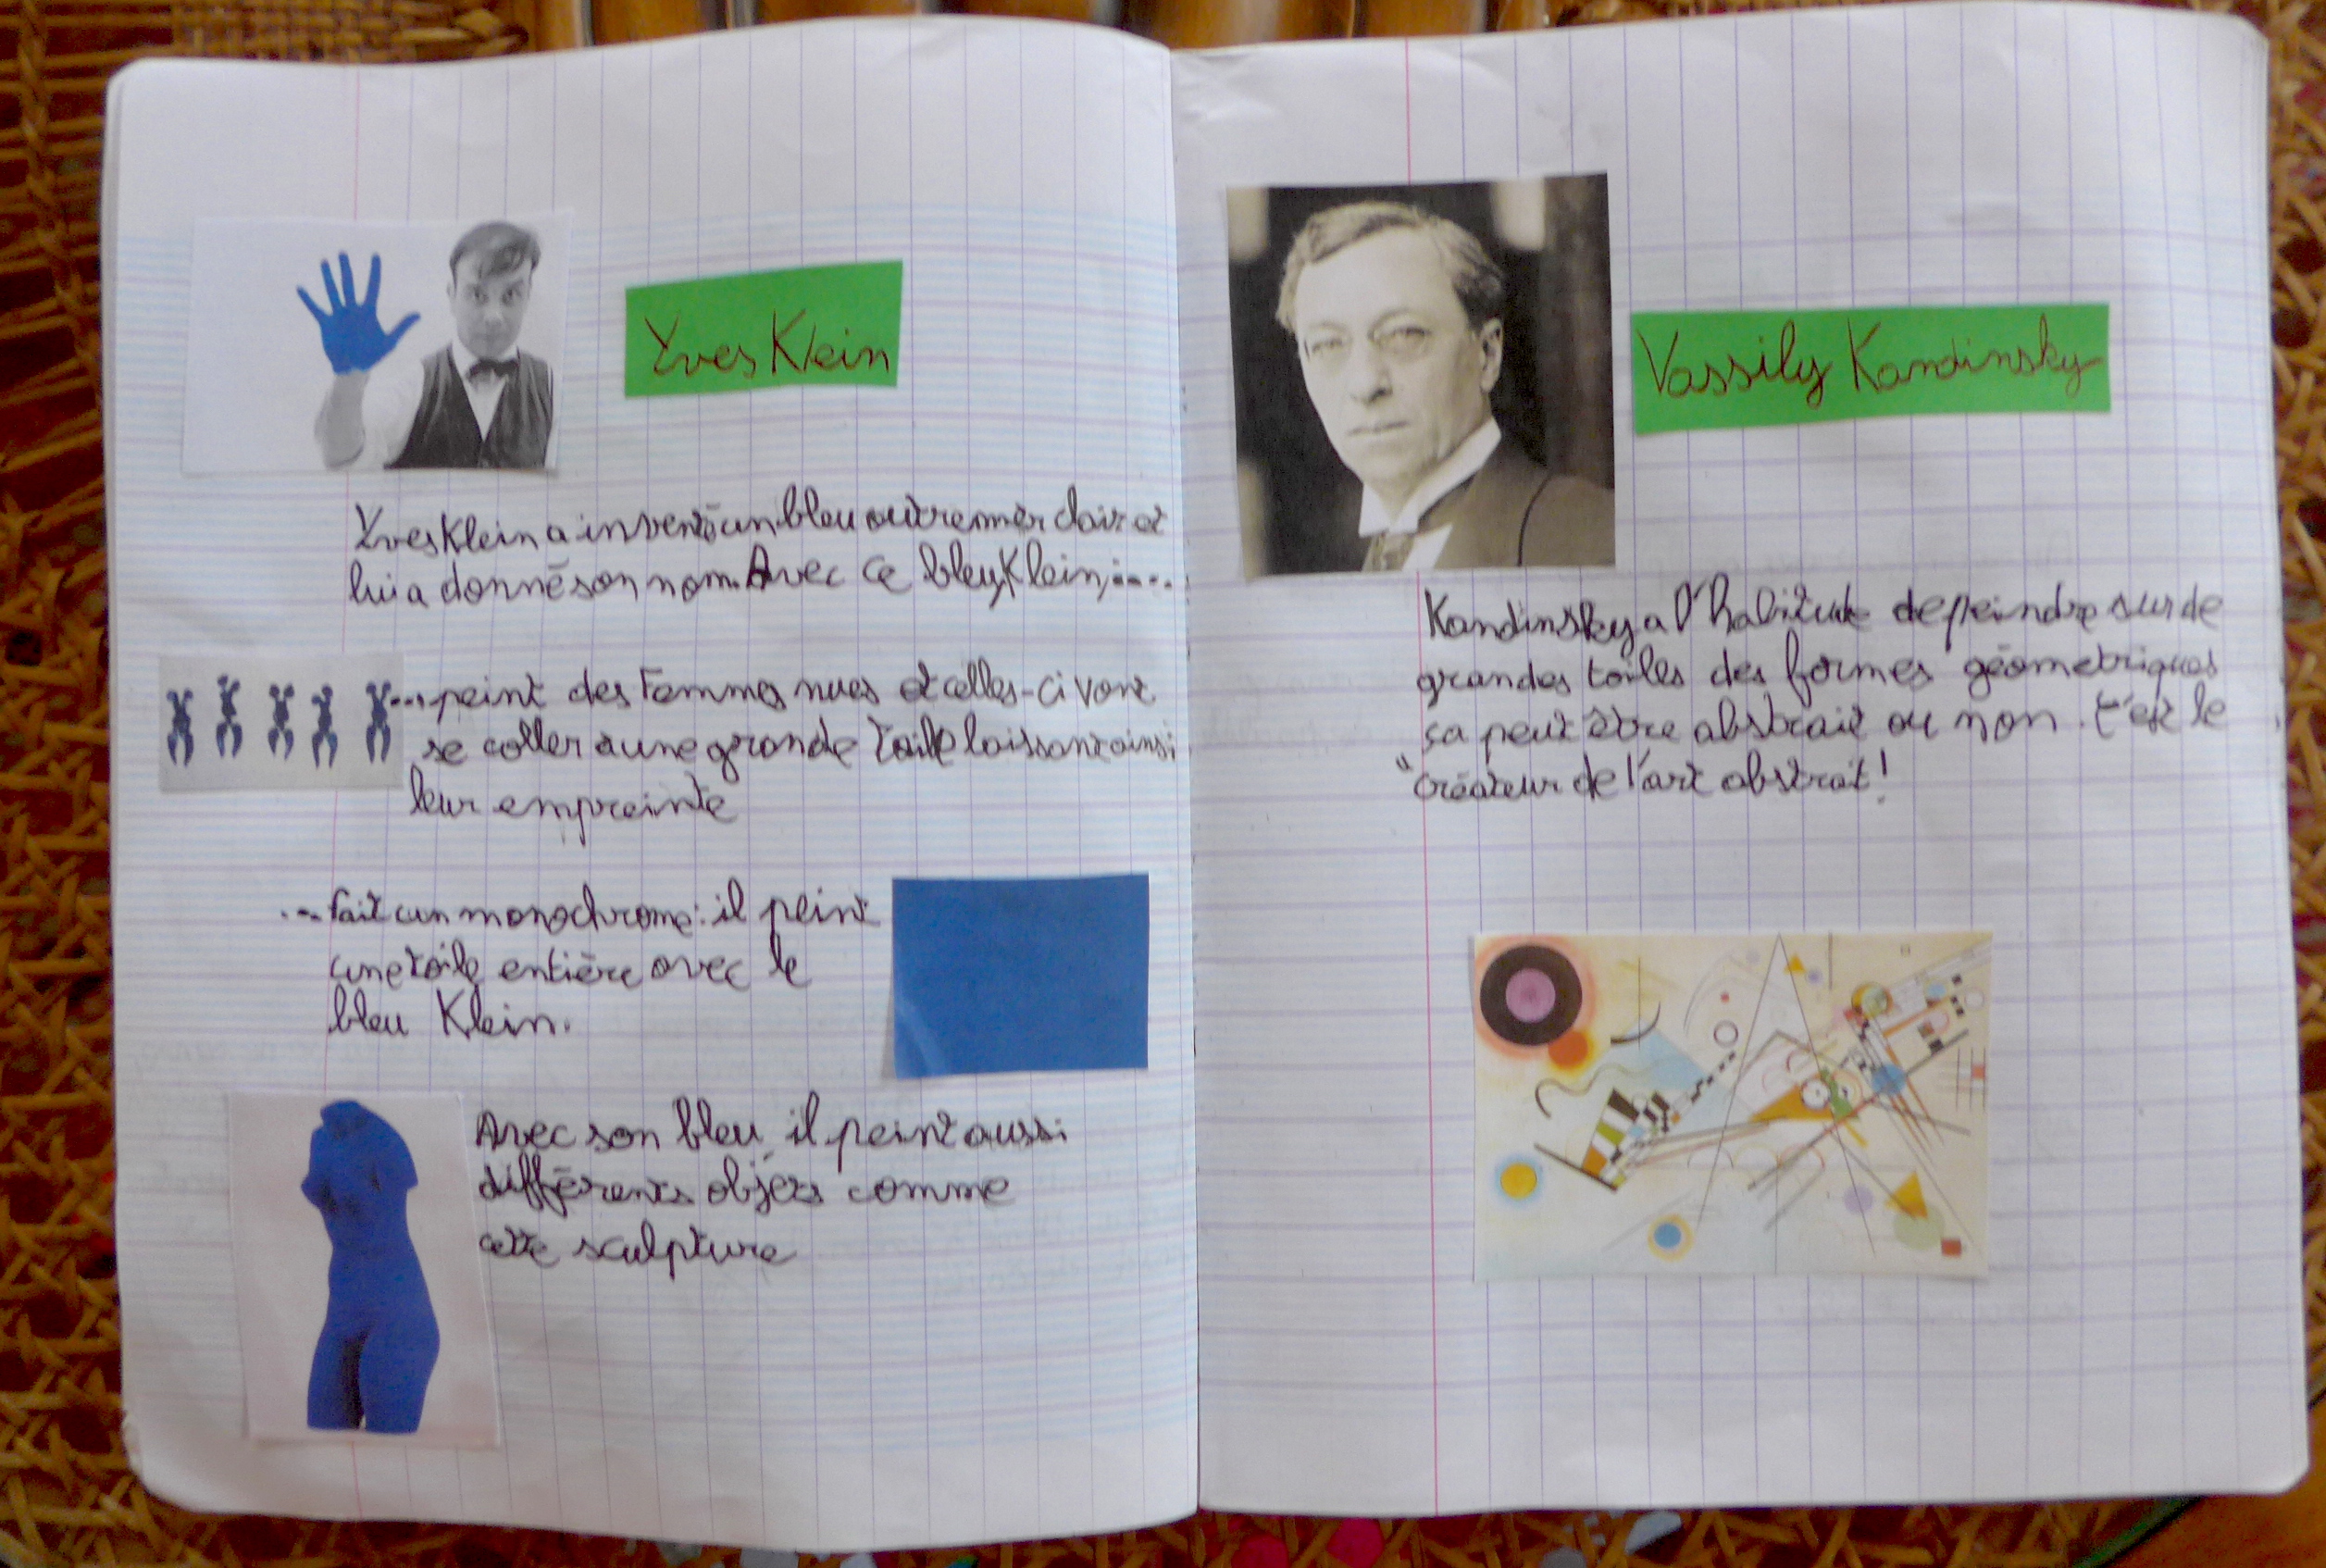 Yves Klein
Yves Klein a inventé un bleu outremer clair et
lui a donné son nom. Avec ce bleu Klein, ....
... peint des femmes nues et celles-ci vont
se coller a une grande toile laissant ainsi
leur empreinte
... fait un monochrome : il peint
une toile entière avec le
bleu Klein.
Avec son bleu, il peint aussi
différents objets comme
cette sculpture
Vassily Kandinsky
Kandinsky a l'habitude de peindre sur de
grandes toiles des formes géometriques
ça peut être abstrait ou non. C'est le
"créateur de l'art abstrait!